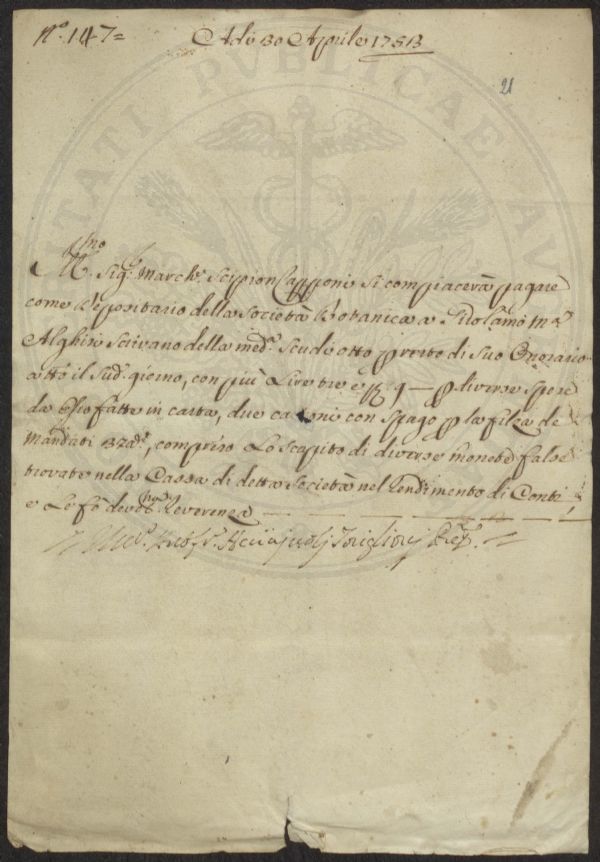 N.º 147=
Adì 30 Aprile 1753
21
Ill.mo Sig.r March.e Scipion Capponi si compiacerà pagare
come Depositario della Società Botanica a Girolamo M.a
Alghisi Scrivano della med.a Scudi otto p resto di suo Onorario
a tt.o il Sud.o giorno, con più Lire tre e 9 — p diverse spese
da esso fatte in carta, due cartoni con spago p la filza de
Mandati &, compreso Lo scapito di diverse monete false
trovate nella Cassa di detta Società nel Rendimento di Conti,
e Le fò devot.ma Reverenza
PVBLICAE